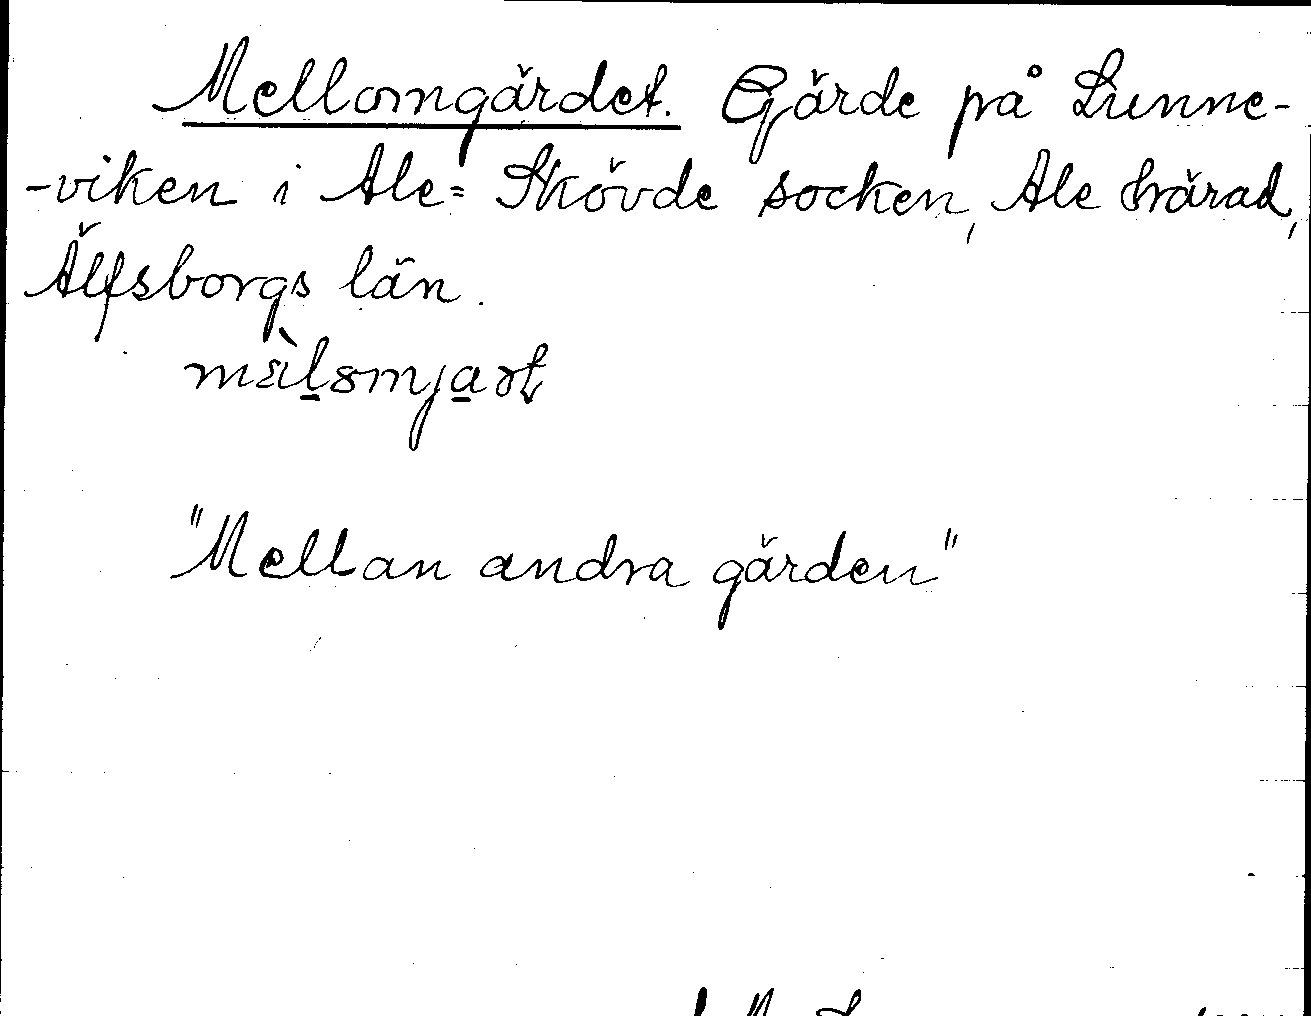 Mellomgärdet. Gärde på Lunne-
-viken i Ale-Skövde socken, Ale härad,
Älfsborgs län.
"Mellan andra gärden"